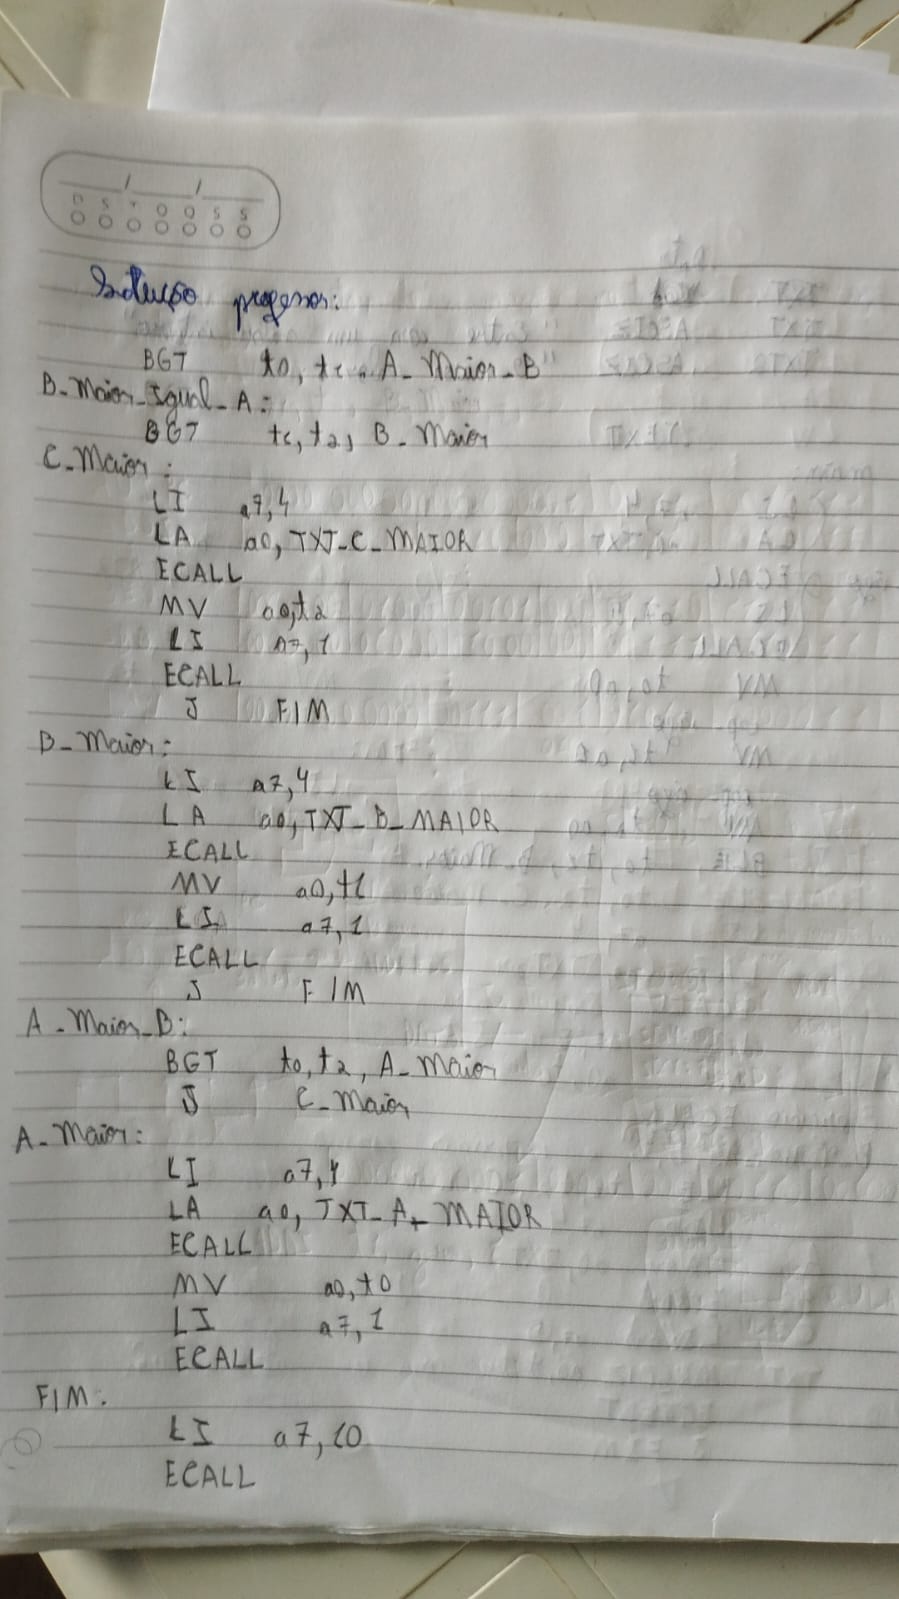 D S T Q Q S S
Solução professor:
BGT t0, t1, A_Maior_B
B_Maior_Igual_A:
BGT t1, t2, B_Maior
C_Maior:
LI a7,4
LA a0, TXT_C_MAIOR
ECALL
MV a0,t2
LI a7,1
ECALL
J FIM
B_Maior:
LI a7,4
LA a0, TXT_B_MAIOR
ECALL
MV a0,t1
LI a7,1
ECALL
J FIM
A_Maior_B:
BGT t0, t2, A_Maior
J C_Maior
A_Maior:
LI a7,4
LA a0, TXT_A_MAIOR
ECALL
MV a0,t0
LI a7,1
ECALL
FIM:
LI a7,10
ECALL